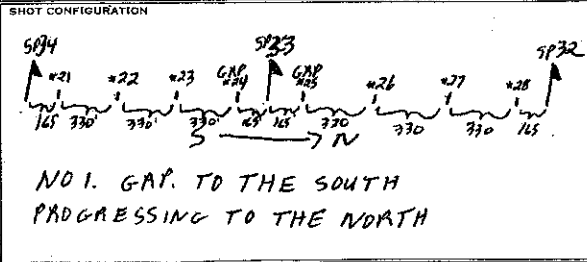 SHOT CONFIGURATION
SP34 SP33 SP32
*21 *22 *23 GAP *24 GAP *25 *26 *27 *28
165 330 330' 330' 165 165 330 330 330 165
S N
NO 1. GAP. TO THE SOUTH
PROGRESSING TO THE NORTH